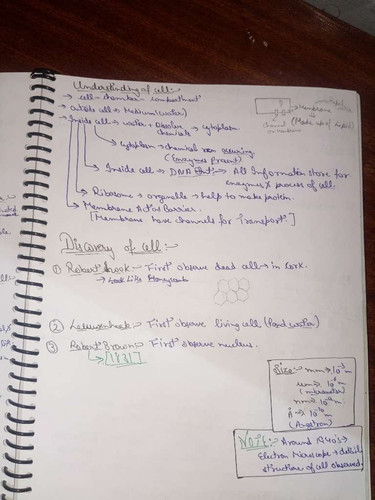 Understanding of cell:-
→ cell - chamber - compartment
→ outside cell → Medium (water)
→ Inside cell → water + Dissolve chemicals → cytoplasm.
cytoplasm → chemical rxn occuring
(Enzymes Present)
→ Inside cell → DNA → All Information store for
enzymes & process of cell.
→ Ribosome → organelle → help to make protein.
→ Membrane Act as Barrier.
[Membrane have channels for Transport]
Membrane
(Made up of Lipid)
channel
Discovery of cell:-
① Robert Hook:- First observe dead cell → in cork.
→ Look Like Honeycomb
② Leeuwenhoek:- First observe living cell (Pond water)
③ Robert Brown:- First observe nucleus.
→ [1831]
Size:- mm → 10⁻³ m
μm → 10⁻⁶ m
(micrometer)
nm → 10⁻⁹ m
Å → 10⁻¹⁰ m
(Angstrom)
NOTE:- Around 1940's →
Electron Microscope → detail
structure of cell observed.